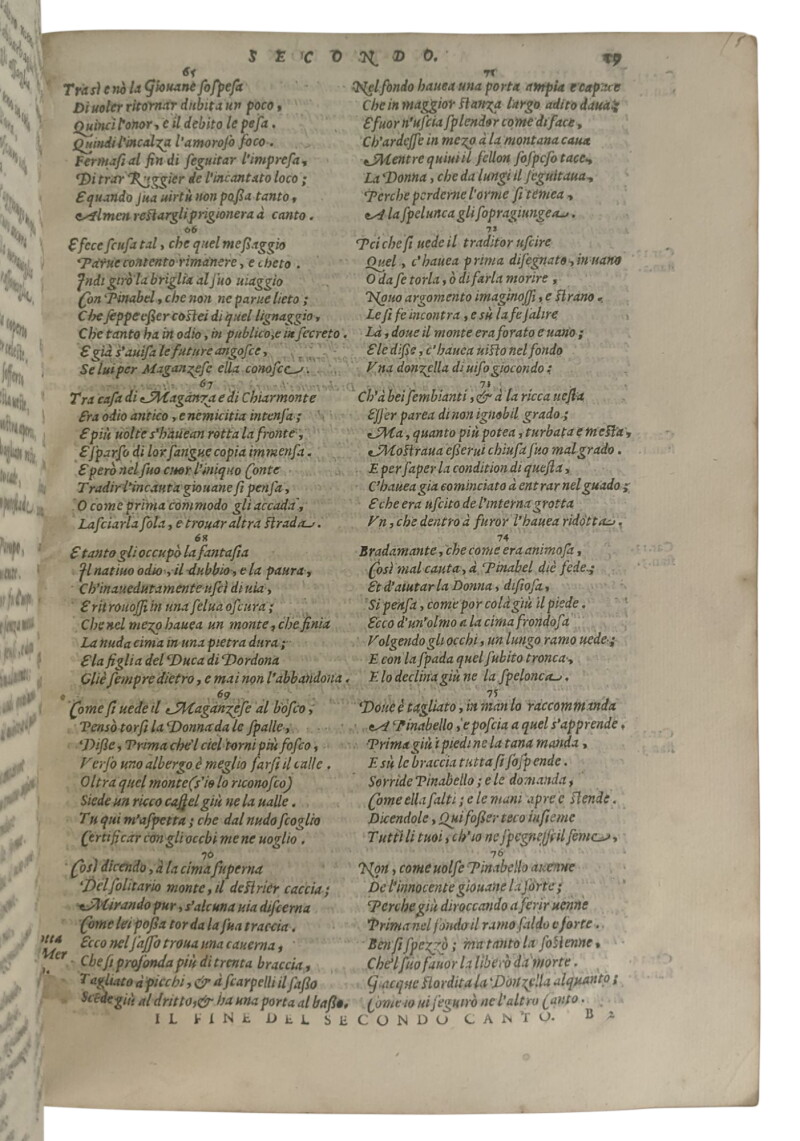 SECONDO.
19
65
Tra sì e nò la Giouane sospesa
Di uoler ritornar dubita un poco,
Quinci l'onor, e il debito le pesa.
Quindi l'incalza l'amoroso foco.
Fermasi al fin di seguitar l'impresa,
Di trar Ruggier de l'incantato loco;
E quando sua uirtù non poßa tanto,
Almen restargli prigionera à canto.
66
E fece scusa tal, che quel meßaggio
Parue contento rimanere, e cheto.
Indi girò la briglia al suo uiaggio
Con Pinabel, che non ne parue lieto;
Che seppe eßer costei di quel lignaggio,
Che tanto ha in odio, in publico, e in secreto.
E già s'auisa le future angosce,
Se lui per Maganzese ella conosce.
67
Tra casa di Maganza e di Chiarmonte
Era odio antico, e nemicitia intensa;
E più uolte s'hauean rotta la fronte,
E sparso di lor sangue copia immensa.
E però nel suo cuor l'iniquo Conte
Tradir l'incauta giouane si pensa,
O come prima commodo gli accada,
Lasciarla sola, e trouar altra strada.
68
E tanto gli occupò la fantasia
Il natiuo odio, il dubbio, e la paura,
Ch'inauedutamente uscì di uia,
E ritrouossi in una selua oscura;
Che nel mezo hauea un monte, che finia
La nuda cima in una pietra dura;
E la figlia del Duca di Dordona
Gli è sempre dietro, e mai non l'abbandona.
69
Come si uede il Maganzese al bosco,
Pensò torsi la Donna da le spalle,
Diße, Prima che'l ciel torni più fosco,
Verso uno albergo è meglio farsi il calle.
Oltra quel monte (s'io lo riconosco)
Siede un ricco castel giù ne la ualle.
Tu qui m'aspetta; che dal nudo scoglio
Certificar con gli occhi me ne uoglio.
70
Così dicendo, à la cima superna
Del solitario monte, il destrier caccia;
Mirando pur, s'alcuna uia discerna
Come lei poßa tor da la sua traccia.
Ecco nel saßo troua una cauerna,
Che si profonda più di trenta braccia,
Tagliato à picchi, & à scarpelli il saßo
Scēde giù al dritto, & ha una porta al baßo.
71
Nel fondo hauea una porta ampia e capace
Che in maggior stanza largo adito daua;
E fuor n'uscia splendor come di face,
Ch'ardesse in mezo à la montana caua
Mentre quiui il fellon sospeso tace,
La Donna, che da lungi il seguitaua,
Perche perderne l'orme si temea,
A la spelunca gli sopragiungea.
72
Poi che si uede il traditor uscire
Quel, c'hauea prima disegnato, in uano
O da se torla, ò di farla morire,
Nouo argomento imaginossi, e strano.
Le si fe incontra, e sù la fe salire
Là, doue il monte era forato e uano;
E le diße, c'hauea uisto nel fondo
Vna donzella di uiso giocondo:
73
Ch'à bei sembianti, & à la ricca uesta
Esser parea di non ignobil grado;
Ma, quanto più potea, turbata e mesta,
Mostraua eßerui chiusa suo mal grado.
E per saper la condition di questa,
C'hauea gia cominciato à entrar nel guado;
E che era uscito de l'interna grotta
Vn, che dentro à furor l'hauea ridotta.
74
Bradamante, che come era animosa,
Così mal cauta, à Pinabel diè fede;
Et d'aiutar la Donna, disiosa,
Si pensa, come por colà giù il piede.
Ecco d'un'olmo a la cima frondosa
Volgendo gli occhi, un lungo ramo uede;
E con la spada quel subito tronca,
E lo declina giù ne la spelonca.
75
Doue è tagliato, in man lo raccommanda
A Pinabello, e poscia a quel s'apprende.
Prima giù i piedi ne la tana manda,
E sù le braccia tutta si sospende.
Sorride Pinabello; e le domanda,
Come ella salti; e le mani apre e stende.
Dicendole, Qui foßer teco insieme
Tutti li tuoi, ch'io ne spegnessi il seme,
76
Non, come uolse Pinabello auenne
De l'innocente giouane la sorte;
Perche giù diroccando a ferir uenne
Prima nel fondo il ramo saldo e forte.
Ben si spezzò; ma tanto la sostenne,
Che'l suo fauor la liberò da morte.
Giacque stordita la Donzella alquanto:
Come io ui seguirò ne l'altro Canto.
IL FINE DEL SECONDO CANTO.
B 2